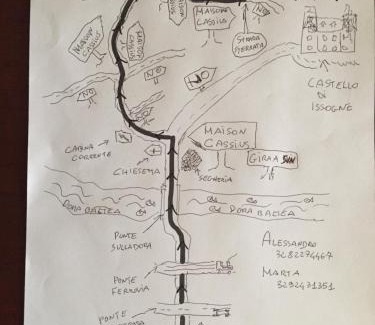 MAISON
CASSIUS
MAISON
CASSIUS
MAISON
CASSIUS
STRADA
STERRATA
NO
NO
NO
NO
CASTELLO
DI
ISSOGNE
CATENA
CORRENTE
CHIESETTA
MAISON
CASSIUS
SEGHERIA
GIRA A SUN
DORA BALTEA
DORA BALTEA
PONTE
SULLA DORA
ALESSANDRO
3282274467
MARTA
3292471351
PONTE
FERROVIA
PONTE